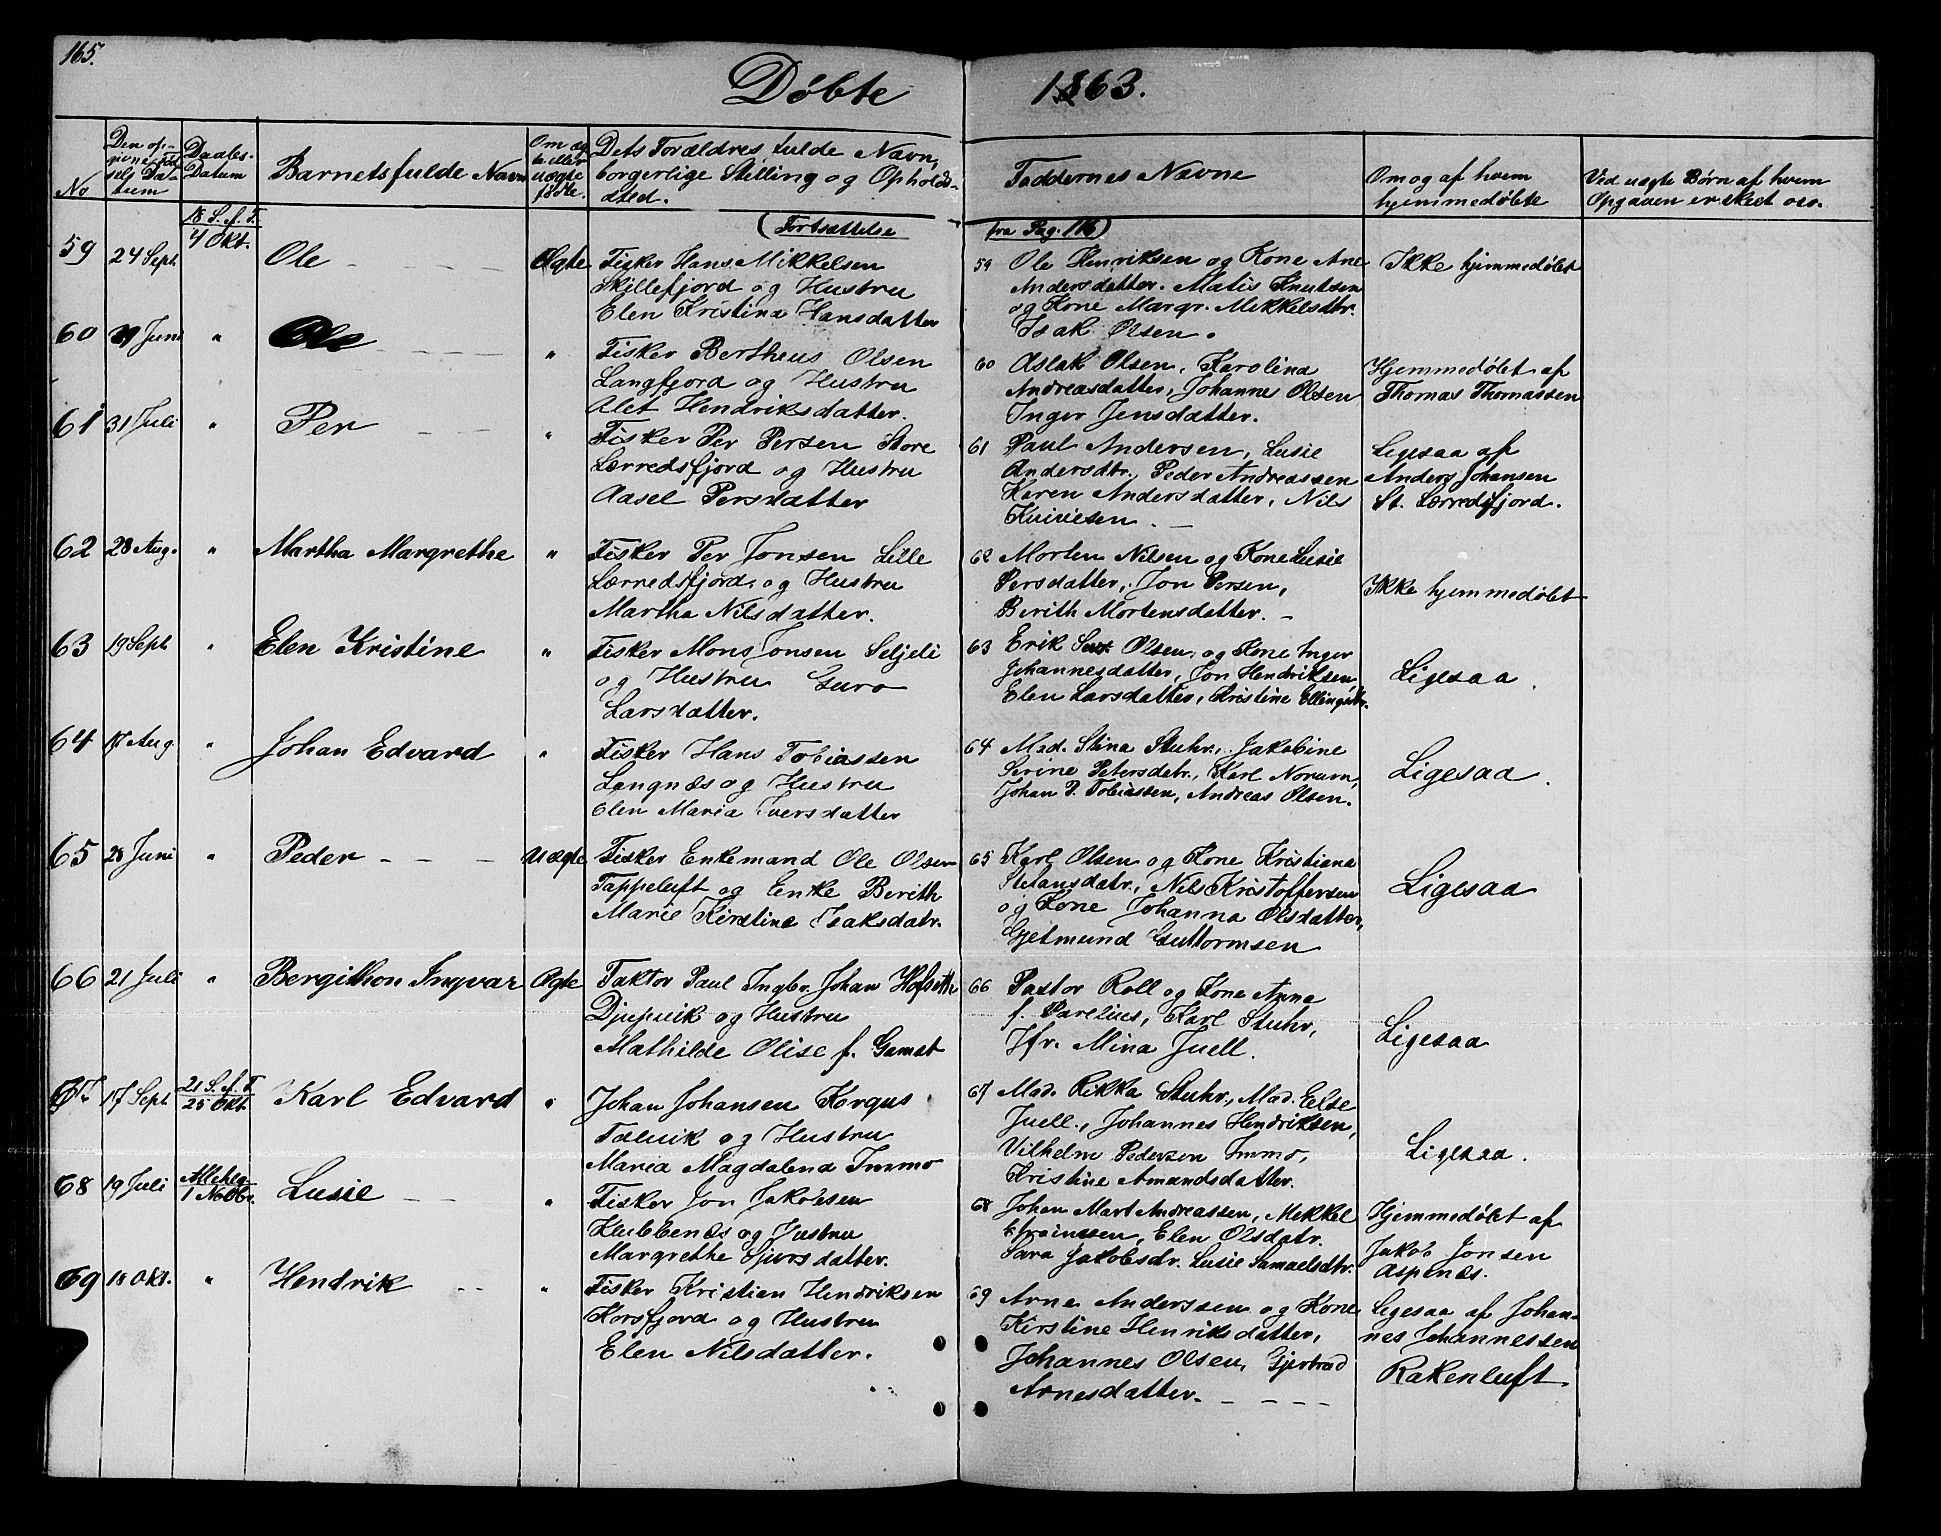 165.
Döbte 1863.
No
Den op-
givne Föd
sels Da-
tum
Daabs-
Datum
Barnets fulde Navn
Om æg
te eller
uægte
födte.
Dets Forældres fulde Navn,
borgerlige Stilling og Opholds-
sted.
Faddernes Navne
Om og af hvem
hjemmedöbte
Ved uægte Börn af hvem
Opgaven er skeet osv.
(Fortsættelse fra Pag. 116)
18 S. f. T.
4 Okt.
59 24 Sept. Ole Ægte
Fisker Hans Mikkelsen
Skillefjord og Hustru
Elen Kristina Hansdatter
59 Ole Henriksen og Kone Ane
Andersdatter. Matis Knutsen
og Kone Margr. Mikkelsdtr.
Isak Olsen.
Ikke hjemmedöbt
60 Juni " Ole "
Fisker Bertheus Olsen
Langfjord og Hustru
Alet Hendriksdatter.
60 Aslak Olsen, Karolina
Andreasdatter, Johannes Olsen
Inger Jensdatter.
Hjemmedöbt af
Thomas Thomassen
61 31 Juli " Per "
Fisker Per Persen Store
Lerredsfjord og Hustru
Aasel Persdatter
61 Paul Andersen, Lusie
Andersdtr., Peder Andreassen
Karen Andersdatter, Nils

Ligesaa af
Anders Johansen
St. Lerredsfjord.
62 28 Aug. " Martha Margrethe "
Fisker Per Jonsen Lille
Lerredsfjord og Hustru
Martha Nilsdatter.
62 Morten Nilsen og Kone Lusie
Persdatter, Jon Persen,
Berith Mortensdatter.
Ikke hjemmedöbt
63 19 Sept " Elen Kristine "
Fisker Mons Jonsen Seljeli
og Hustru Guro
Larsdatter.
63 Erik Olsen og Kone Inger
Johannesdatter, Jon Hendriksen
Elen Larsdatter, Kristine Ellingsdtr.
Ligesaa.
64 17 Aug " Johan Edvard "
Fisker Hans Tobiassen
Langnæs og Hustru
Elen Maria Iversdatter
64 Mad. Stina Stuhr, Jakobine
Serine Petersdatr., Karl Norum,
Johan P. Tobiassen, Andreas Olsen.
Ligesaa.
65 28 Juni " Peder Uægte
Fisker Enkemand Ole Olsen
Tappeluft og Enke Berith
Marie Kirstine Isaksdatr.
65 Karl Olsen og Kone Kristiana
Stefansdatr., Nils Kristoffersen
og Kone Johanna Olsdatter,
Gjetmund Guttormsen
Ligesaa
66 21 Juli " Bergithon Ingvar Ægte
Faktor Paul Ingbr. Johan Hofseth
Djupvik og Hustru
Mathilde Olise f. Gamst
66 Pastor Roll og Kone Anna
f. Parelius, Karl Stuhr,
Jfr. Mina Juell.
Ligesaa
67 17 Sept 21 S. f. T
25 Okt.
Karl Edvard "
Johan Johansen Korgus
Talvik og Hustru
Maria Magdalena Immo
67 Mad. Rikka Stuhr, Mad. Else
Juell, Johannes Hendriksen,
Vilhelm Pedersen Immo,
Kristine Amandsdatter.
Ligesaa.
68 19 Juli Allehlg
1 Novbr.
Lusie "
Fisker Jon Jakobsen
Klubbenæs og Hustru
Margrethe Sjursdatter.
68 Johan Mart. Andreassen, Mikkel
Efraimsen, Elen Olsdatr.
Sara Jakobsdr. Lusie Samuelsdtr.
Hjemmedöbt af
Jakob Jonsen
Aspenæs.
69 18 Okt. " Hendrik "
Fisker Kristian Hendriksen
Korsfjord og Hustru
Elen Nilsdatter.
69 Arne Anderssen og Kone
Kirstine Henriksdatter,
Johannes Olsen, Gjertrud
Arnesdatter.
Ligesaa af Johan-
nes Johannessen
Rakenluft.